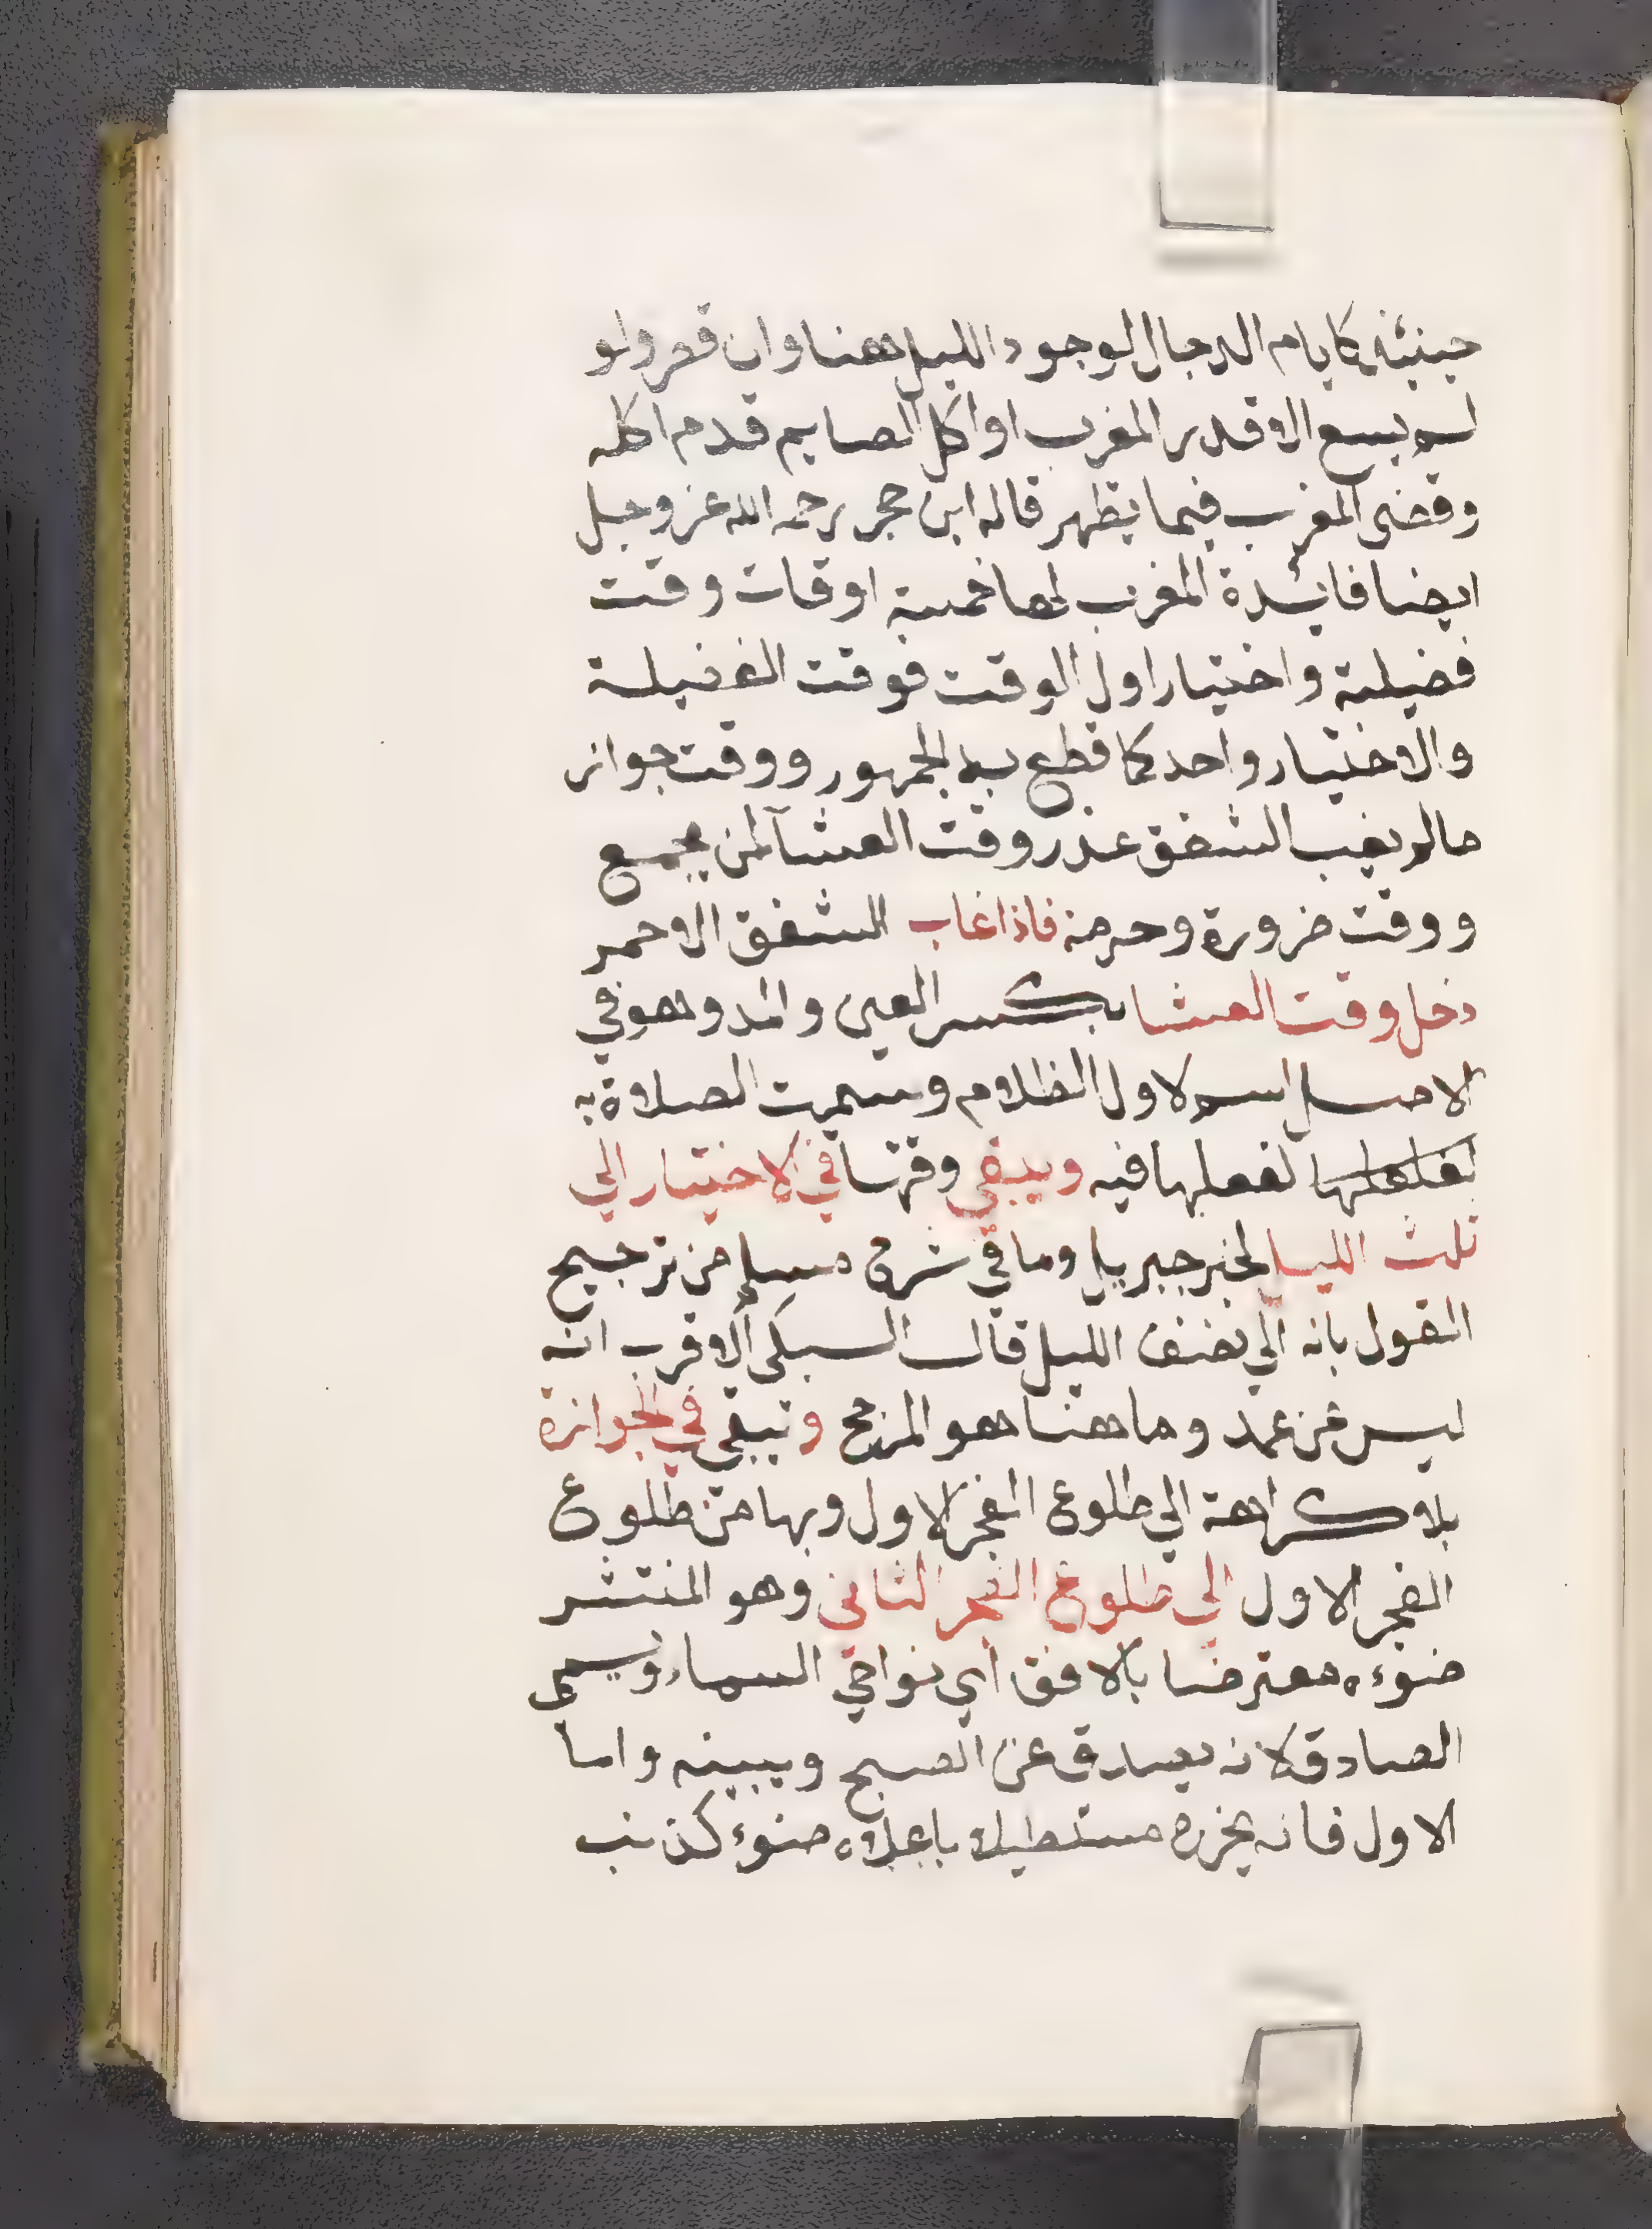 حينئذ كايام الدجال لوجود الليل هنا وان قصر ولو
لم يسع الا قدر المغرب او اكل الصايم قدم اكله
وقضى المغرب فيما يظهر قاله ابن حجر رحمه الله عز وجل
ايضا فائدة المغرب لها خمسة اوقات وقت
فضيلة واختيار اول الوقت فوقت الفضيلة
والاختيار واحد كما قطع به الجمهور ووقت جواز
مالم يغيب الشفق عذر وقت العشآ لمن يجمع
ووقت ضرورة وحرمة فاذا غاب الشفق الاحمر
دخل وقت العشا بكسر العين والمد وهو في
الاصل اسم لاول الظلام وسميت الصلاة به
لفعلها لفعلها فيه ويبقى وقتها في الاختيار الي
ثلث الليل لخبر جبريل وما في شرح مسلم من ترجيح
القول بانه الي نصف الليل قال السبكي الاقرب انه
ليس عن عمد وما هنا هو المرجح وتبقي في الجوازة
بلا كراهة الي طلوع الفجر الاول وبها من طلوع
الفجر الاول الي طلوع الفجر الثاني وهو المنتشر
ضوءه معترضا بالافق اي نواحي السماء ويسمى
الصادق لانه يصدق عن الصبح ويبينه واما
الاول فانه يخره مستطيلا باعلاه ضوء كذنب